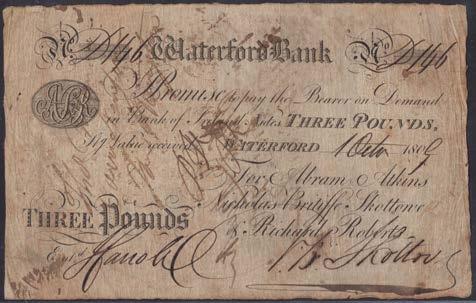 No D146 Waterford Bank No D146
I Promise to pay the Bearer on Demand
in Bank of Ireland Notes THREE POUNDS,
Value received WATERFORD 1 Octr 1809
For Abram Atkins
Nicholas Britiffe Skottowe
THREE Pounds & Richard Roberts
Entd N. B. Skottowe